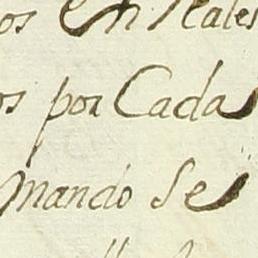 os en Reales
os por Cada
mando se